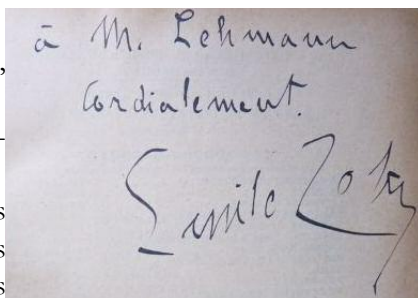 à M. Lehmann
Cordialement.
Emile Zola